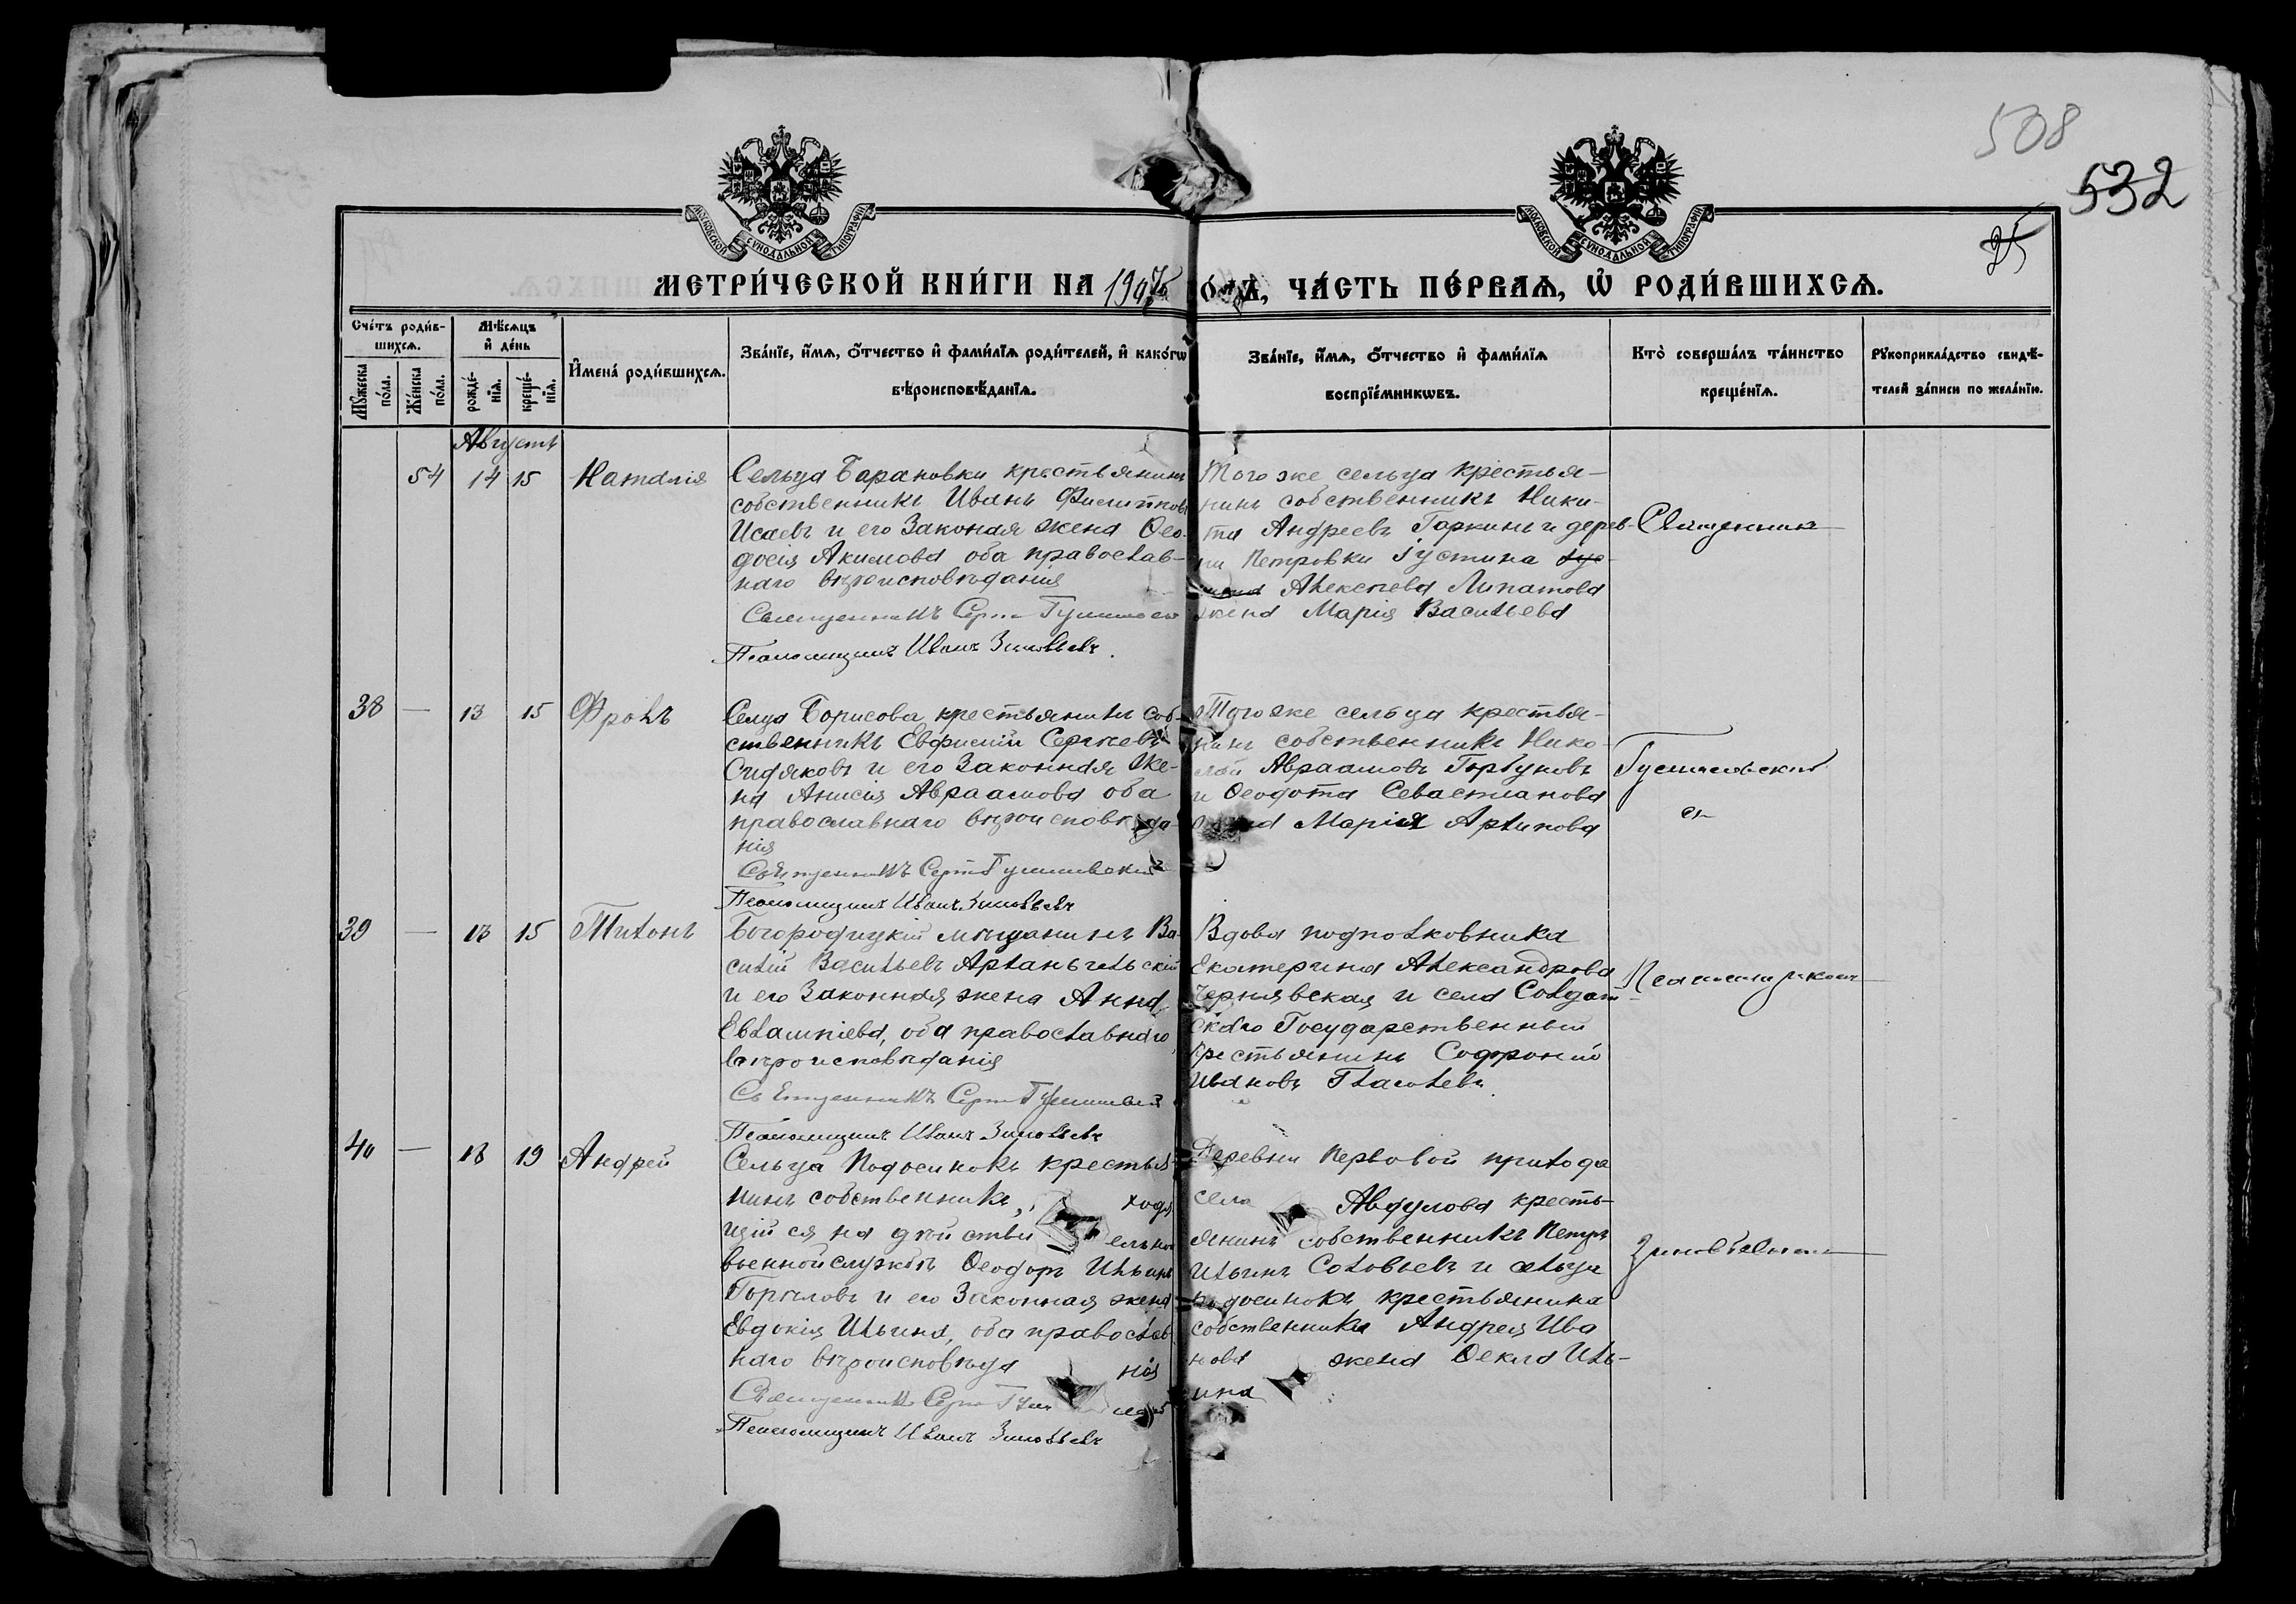 508
532
25
МОСКОВСКОЙ СѴНОДАЛЬНОЙ ТИПОГРАФІИ
МОСКОВСКОЙ СѴНОДАЛЬНОЙ ТИПОГРАФІИ
МЕТРИ́ЧЕСКОЙ КНИ́ГИ НА 1907
ЧА́СТЬ ПЕ́РВАѦ, Ѡ҆ РОДИ́ВШИХСѦ.
Сче́тъ роди́в-
шихсѧ.
Мꙋ́жеска по́ла.
Же́нска по́ла.
Мѣ́сѧцъ
и҆ де́нь
рожде́-
нїѧ.
креще́-
нїѧ.
И҆мена̀ роди́вшихсѧ.
Зва́нїе, и҆́мѧ, ѻ҆́тчество и҆ фами́лїѧ роди́телей, и҆ како́гѡ
вѣроисповѣ́данїѧ.
Зва́нїе, и҆́мѧ, ѻ҆́тчество и҆ фами́лїѧ
воспрїе́мникѡвъ.
Кто̀ соверша́лъ та́инство
креще́нїѧ.
Рꙋкоприкла́дство свидѣ́-
телей за́писи по жела́нїю.
Августъ
54 14 15 Наталія
Сельца Барановки крестьянинъ
собственникъ Иванъ Филипповъ
Исаевъ и его Законая жена Ѳео-
досія Акимова оба православ-
наго вѣроисповѣданія
Священникъ Сергій
Псаломщикъ Иванъ Зиновьевъ.
Того же сельца крестья-
нинъ собственникъ Ники-
та Андреевъ Гаркинъ и дерев-
ни Петровки Іустина
Алексѣева Липатова
жена Марія Васильева
Священник
38 — 13 15 Фролъ
Селца Борисова, крестьянинъ соб-
ственникъ Евфимій Сергѣевъ
Сидяковъ и его Законная же-
на Анисія Авраамова оба
православнаго вѣроисповѣда-
нія
Священникъ Сергій
Псаломщикъ Иванъ Зиновьевъ
Того же сельца крестья-
нинъ собственникъ Нико-
лай Авраамовъ Горбуновъ
и Ѳеодота Севастианова
жена Марія Архипова
39 — 13 15 Тихонъ
Богородицкій мѣщанинъ Ва-
силій Васильевъ Архангельскій
и его Законная жена Анна
Евлампіева, оба православнаго
вѣроисповѣданія
Священникъ Сергій
Псаломщикъ Иванъ Зиновьевъ
Вдова подполковника
Екатерина Александрова
Чернявская и села Солдат-
скаго Государственный
крестьянинъ Софроній
Ивановъ Глаголевъ
Псаломщикомъ
40 — 18 19 Андрей
Сельца Подосинокъ крестья-
нинъ собственникъ, ходя
щійся на дѣйстви ельной
военной службѣ Ѳеодоръ Ильинъ
Горѣловъ и его Законная жена
Евдокія Ильина, оба православ
наго вѣроисповѣда нія
Священникъ Сергій
Псаломщикъ Иванъ Зиновьевъ
Деревни Перловой прихода
села Авдулова кресть-
янинъ собственникъ Петръ
Ильинъ Соловьевъ и сельца
Подосинокъ крестьянина
собственника Андрея Ива
нова жена Ѳекла Иль-
ина